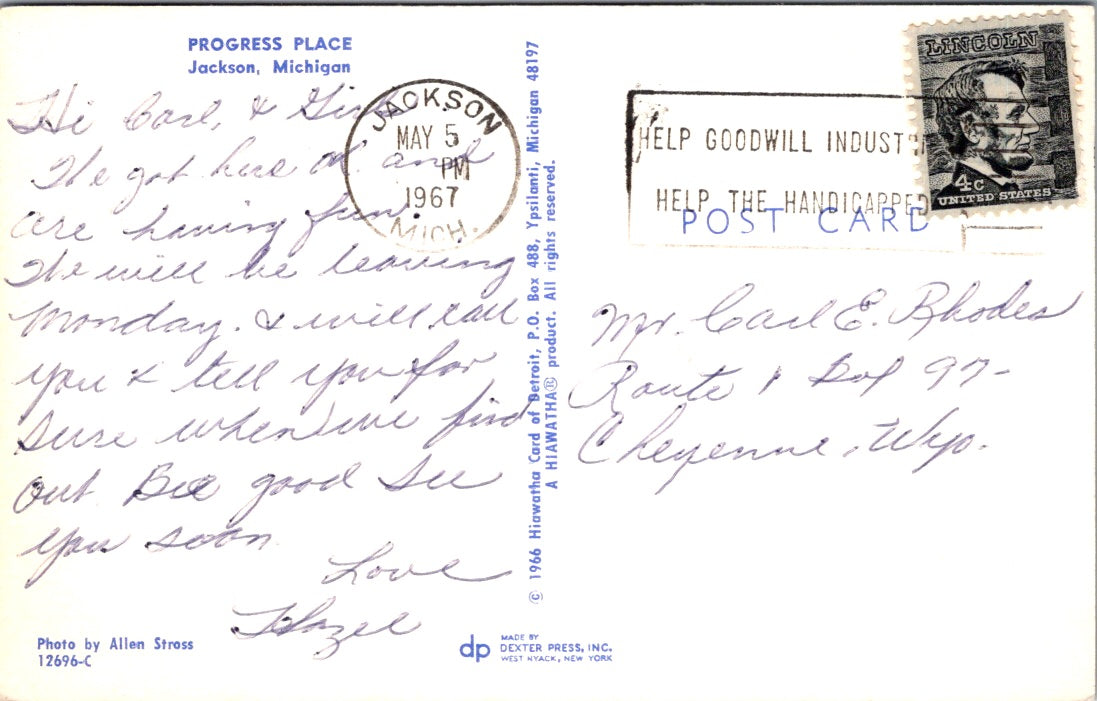 PROGRESS PLACE
Jackson, Michigan
Hi Carl, &
We got here OK and
are having fun.
We will be leaving
Monday. & will call
you & tell you for
sure when we find
out. Bee good see
you soon
Love
Hazel
Photo by Allen Stross
12696-C
JACKSON
MAY 5
PM
1967
MICH.
© 1966 Hiawatha Card of Detroit, P.O. Box 488, Ypsilanti, Michigan 48197
A HIAWATHA® product. All rights reserved.
dp
MADE BY
DEXTER PRESS, INC.
WEST NYACK, NEW YORK
HELP GOODWILL INDUST
HELP THE HANDICAPPED
POST CARD
LINCOLN
4c
UNITED STATES
Mr. Carl E. Rhodes
Route 1 Box 97-
Cheyenne, Wyo.